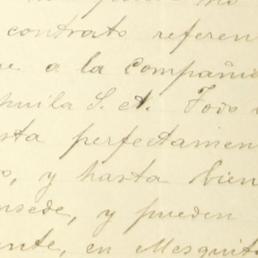 contrato referen
e a la Compañia
huila S. A. Todo
sta perfectamen
o, y hasta bien
nsede, y pueden
ente, en Mesquit